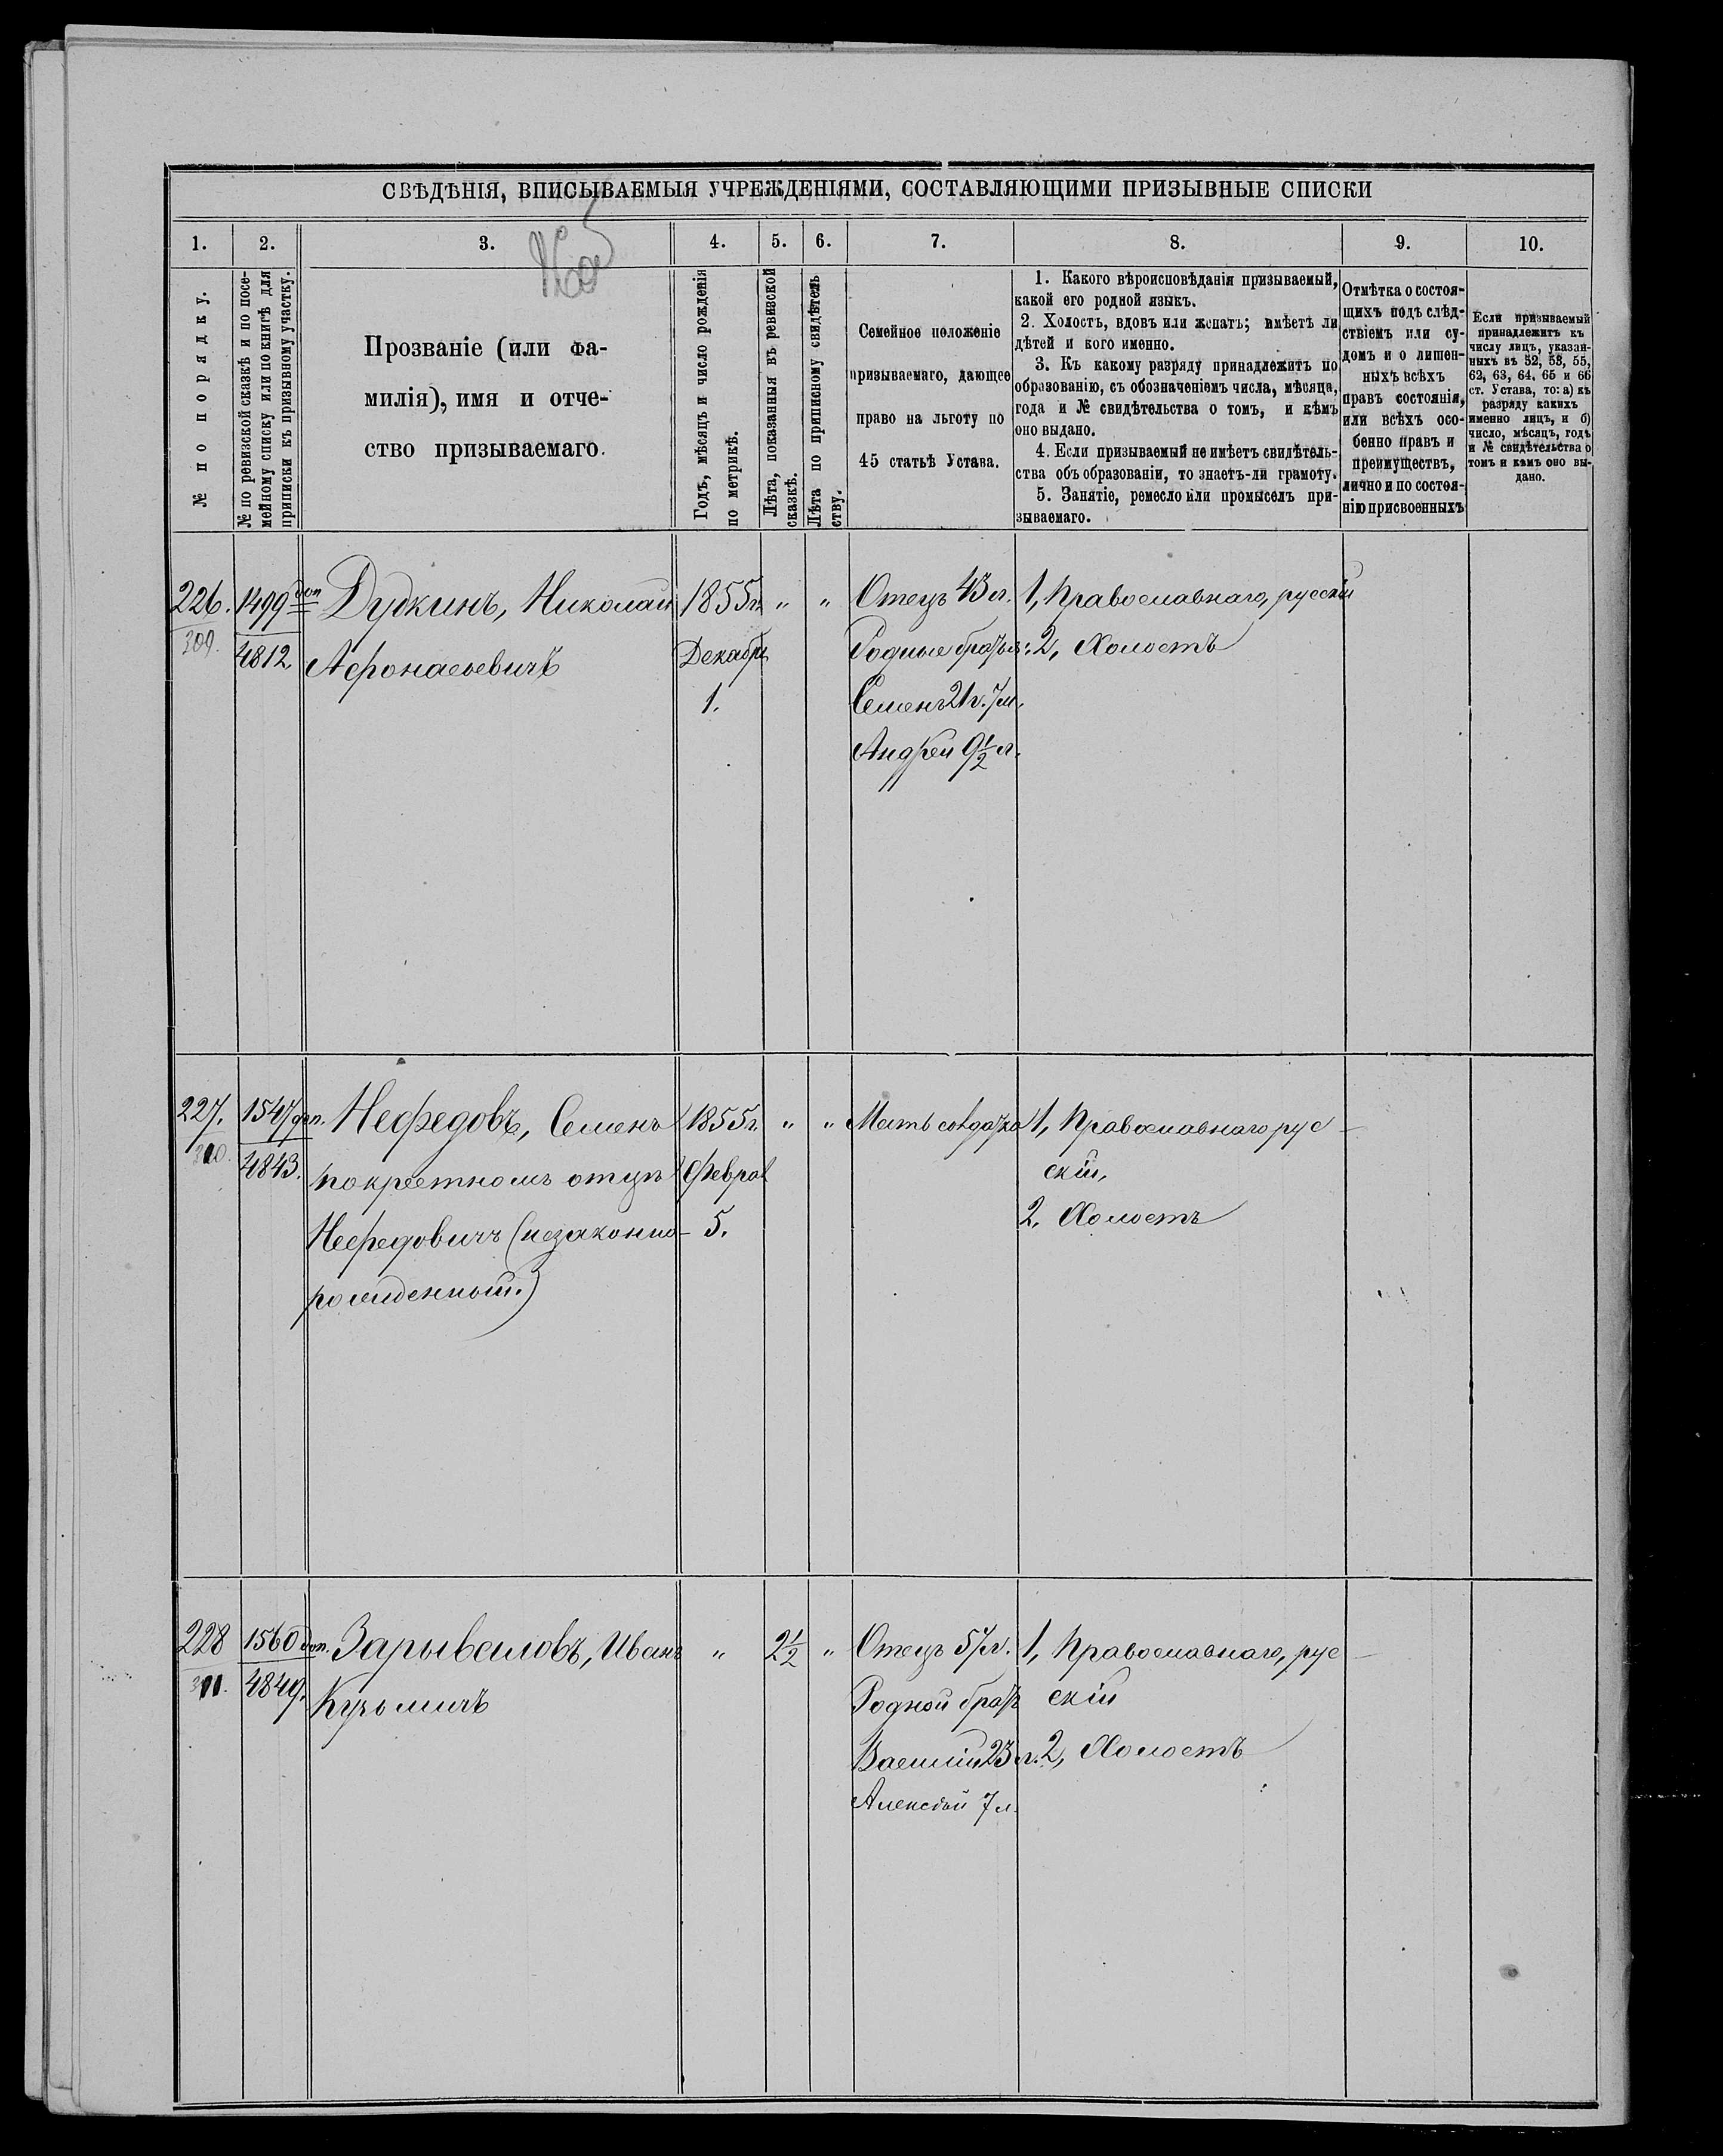 СВѢДѢНІЯ, ВПИСЫВАЕМЫЯ УЧРЕЖДЕНІЯМИ, СОСТАВЛЯЮЩИМИ ПРИЗЫВНЫЕ СПИСКИ
1. 2. 3. 4. 5. 6. 7. 8. 9. 10.
№ по порядку.
№ по ревизской сказкѣ и по посе-
мейному списку или по книгѣ для
приписки къ призывному участку.
Прозваніе (или фа-
милія), имя и отче-
ство призываемаго.
Годъ, мѣсяцъ и число рожденія
по метрикѣ.
Лѣта, показанныя въ ревизской
сказкѣ.
Лѣта по приписному свидѣтель
ству.
Семейное положеніе
призываемаго, дающее
право на льготу по
45 статьѣ Устава.
1. Какого вѣроисповѣданія призываемый,
какой его родной языкъ.
2. Холостъ, вдовъ или женатъ; имѣетъ ли
дѣтей и кого именно.
3. Къ какому разряду принадлежитъ по
образованію, съ обозначеніемъ числа, мѣсяца,
года и № свидѣтельства о томъ, и кѣмъ
оно выдано.
4. Если призываемый не имѣетъ свидѣтель-
ства объ образованіи, то знаетъ-ли грамоту.
5. Занятіе, ремесло или промыселъ при-
зываемаго.
Отмѣтка о состоя-
щихъ подъ слѣд-
ствіемъ или су-
домъ и о лишен-
ныхъ всѣхъ
правъ состоянія,
или всѣхъ осо-
бенно правъ и
преимуществъ,
лично и по состоя-
нію присвоенныхъ
Если призываемый
принадлежитъ къ
числу лицъ, указан-
ныхъ въ 52, 53, 55,
62, 63, 64, 65 и 66
ст. Устава, то: а) къ
разряду какихъ
именно лицъ, и б)
число, мѣсяцъ, годъ
и № свидѣтельства о
томъ и кѣмъ оно вы-
дано.
226.
309.
1499 доп
4812.
Дудкинъ, Николай
Афонасьевичъ
1855 г.
Декабр
1.
" "
Отецъ 43 л.
Родные братья:
Семенъ 21 г. 7 м.
Андрей 9 1/2 л.
1, Православнаго, русскій
2, Холостъ
227.
310.
1547 доп.
4843.
Нефедовъ, Семенъ
по крестномъ отцѣ
Нефедовичъ (незаконно-
рожденный.)
1855 г.
Феврал
5.
" "
Мать солдатка
1, Православнаго рус-
скій,
2. Холостъ
228
311.
1560 доп.
4849.
Зарываловъ, Иванъ
Кузьмичъ
"
2 1/2
"
Отецъ 57 л.
Родной братъ
Василій 23 л.
Алексѣй 7 л.
1, Православнаго, рус-
скій
2, Холостъ